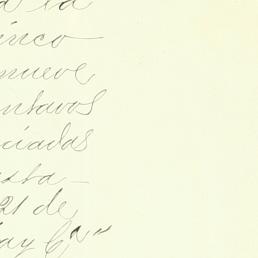 a la
inco
nueve,
ntavos
ciadas
esta—
21 de
ay C,ª"